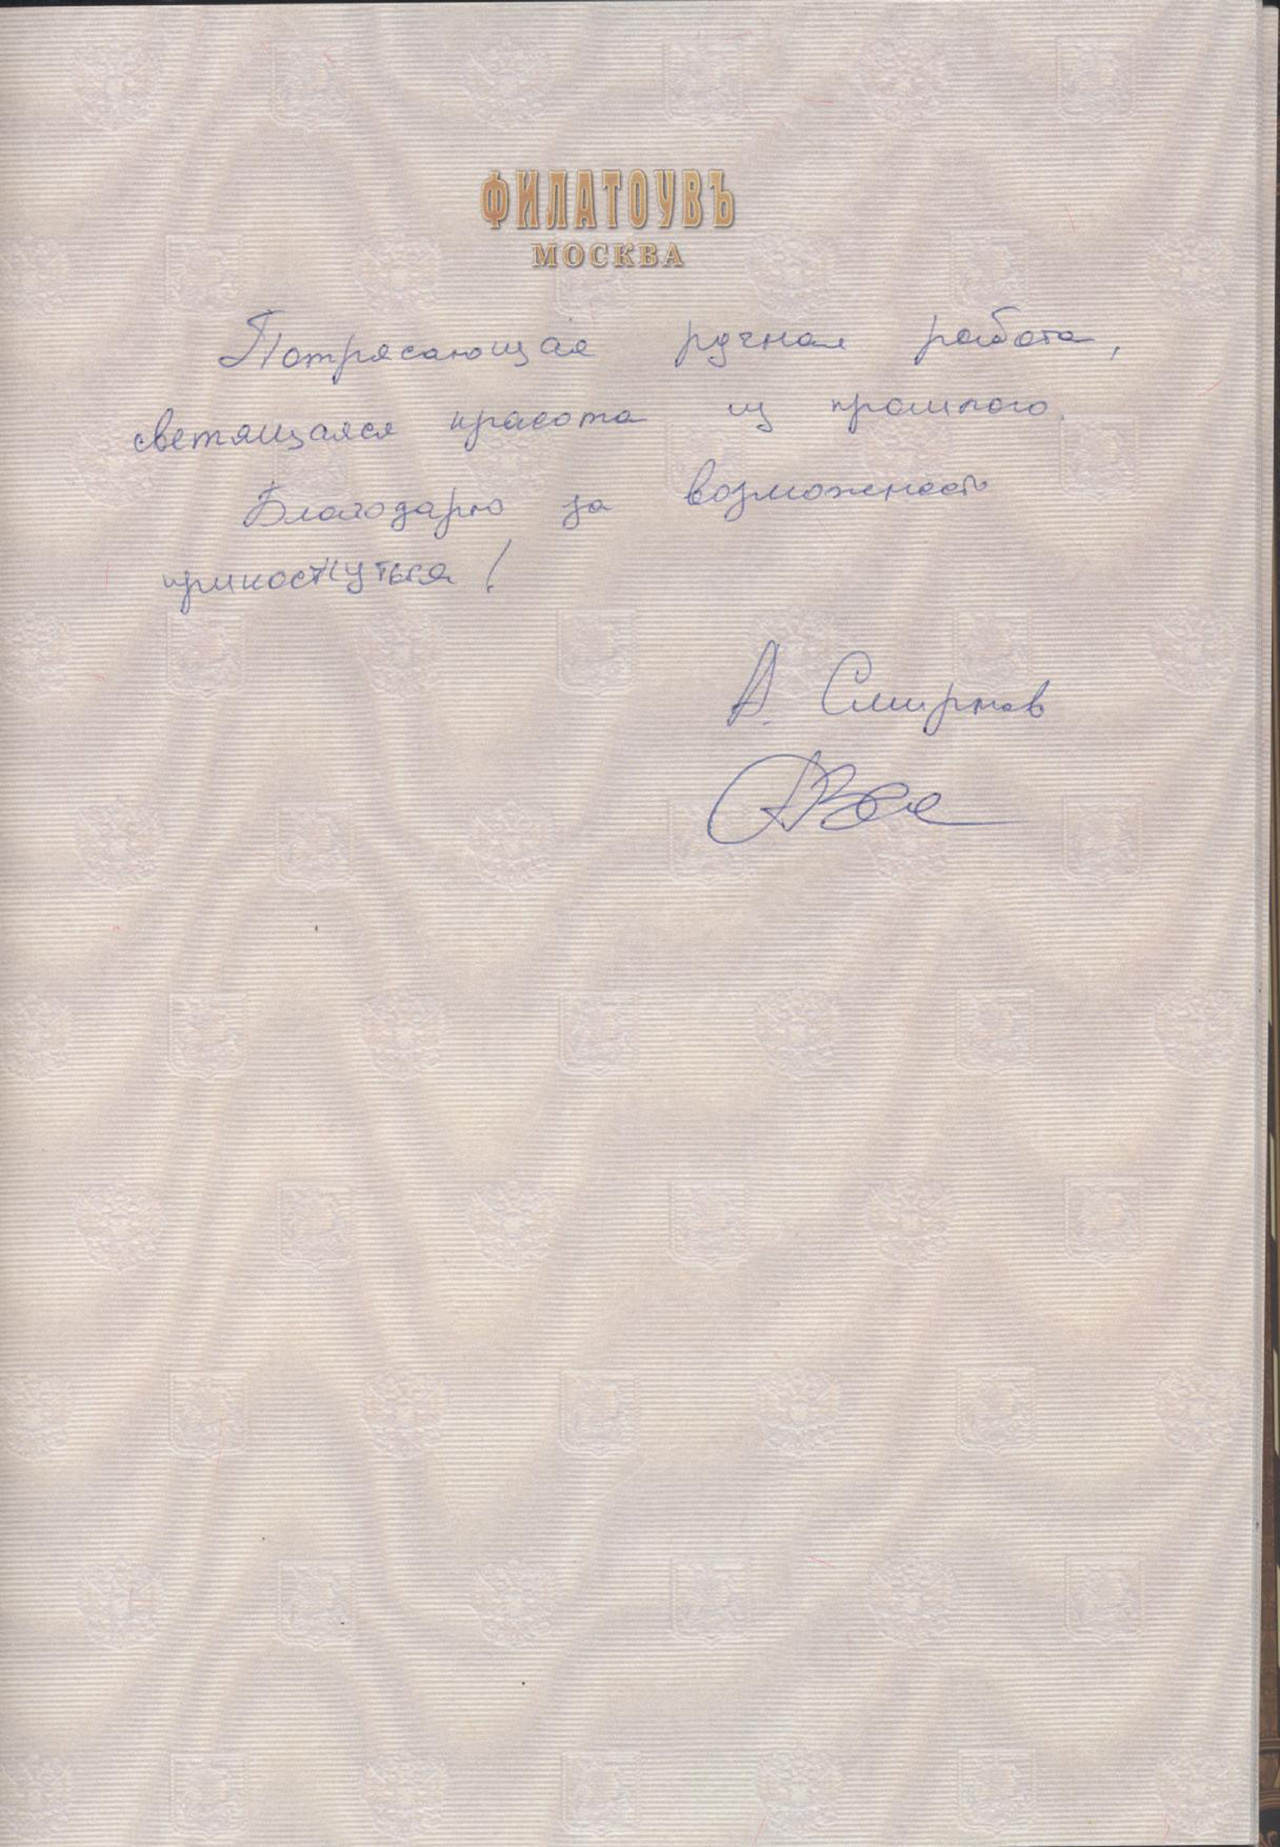 ФИЛАТОУВЪ
МОСКВА
Потрясающая ручная работа,
светящаяся красота из прошлого.
Благодарю за возможность
прикоснуться!
А. Смирнов